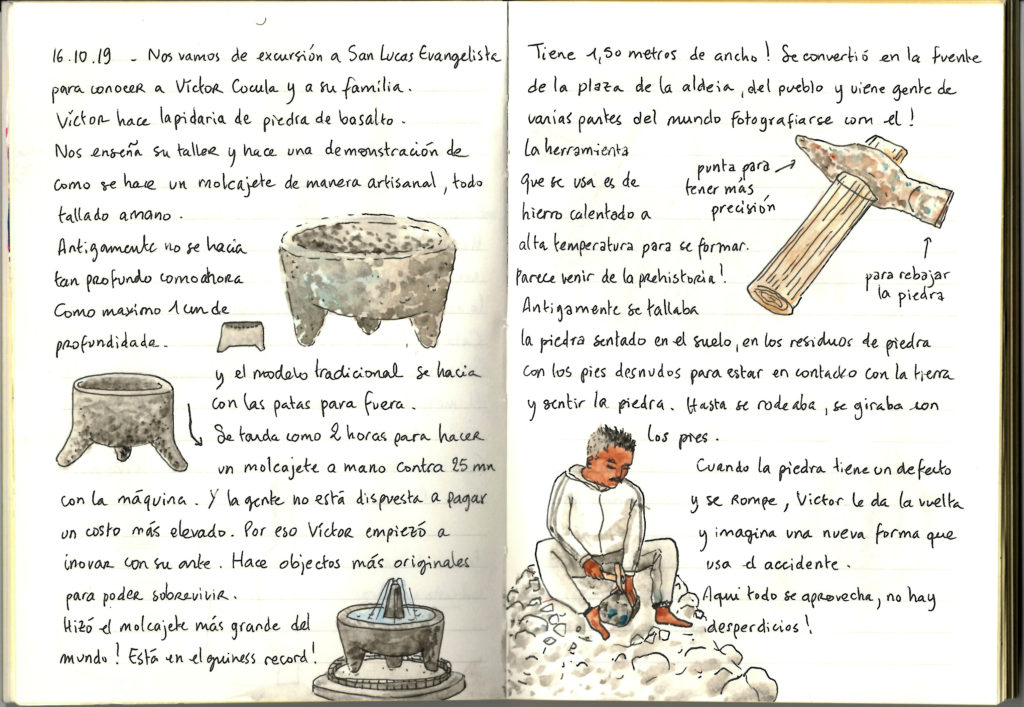 16.10.19 - Nos vamos de excursión a San Lucas Evangelista
para conocer a Víctor Cocula y a su família.
Víctor hace lapidaria de piedra de basalto.
Nos enseña su taller y hace una demonstración de
como se hace un molcajete de manera artisanal, todo
tallado a mano.
Antigamente no se hacia
tan profundo como ahora
Como maximo 1 cm de
profundidade.
y el modelo tradicional se hacia
con las patas para fuera.
Se tarda como 2 horas para hacer
un molcajete a mano contra 25 mn
con la máquina. Y la gente no está dispuesta a pagar
un costo más elevado. Por eso Víctor empiezó a
inovar con su arte. Hace objectos más originales
para poder sobrevivir.
Hizó el molcajete más grande del
mundo! Está en el guiness record!
Tiene 1,50 metros de ancho! Se convertió en la fuente
de la plaza de la aldeia, del pueblo y viene gente de
varias partes del mundo fotografiarse com el!
La herramienta
que se usa es de
hierro calentado a
alta temperatura para se formar.
Parece venir de la prehistoria!
punta para
tener más
precisión
para rebajar
la piedra
Antigamente se tallaba
la piedra sentado en el suelo, en los residuos de piedra
con los pies desnudos para estar en contacto con la tierra
y sentir la piedra. Hasta se rodeaba, se giraba con
los pies.
Cuando la piedra tiene un defecto
y se rompe, Victor le da la vuelta
y imagina una nueva forma que
usa el accidente.
Aqui todo se aprovecha, no hay
desperdicios!